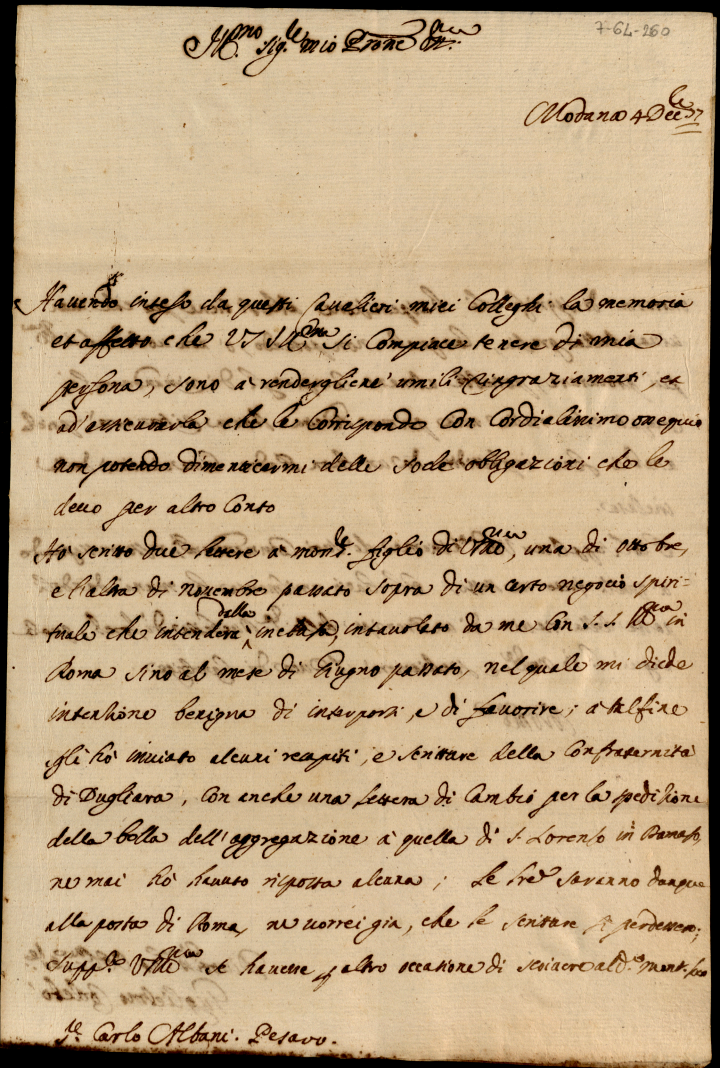 7-64-260
Ill.mo Sig.re mio Prone
Modana 4 Dec.
Havendo inteso da questi Cavalieri miei Colleghi la memoria
et affetto che VS Ill.ma si compiace tenere di mia
persona, sono à rendergliene umili ringraziamenti, et
ad' assicurarla che le corrispondo con cordialissimo ossequio
non potendo dimenticarmi delle sode obbligazioni che le
devo per altro conto
Hò scritto due lettere à mons.r figlio di una di ottobre,
e l'altra di novembre passato sopra di un certo negocio spiri-
tuale che intenderà dalla inclusa, intavolato da me con S. S. Ill.ma in
Roma sino al mese di Giugno passato, nel quale mi diede
intenzione benigna di interporsi, e di favorire; à tal fine
gli hò inviato alcuni recapiti, e scritture della Confraternità
di Pugliara, con anche una lettera di Cambio per la spedizione
della bolla dell'aggregazione à quella di S. Lorenzo in Damaso,
ne mai hò havuto risposta alcuna; le lre saranno dunque
alla posta di Roma, ne vorrei gia, che le scritture si perdessero;
supp.co VS Ill.ma se havesse altro occasione di scrivere al d.o mons.
S.r Carlo Albani. Pesaro.